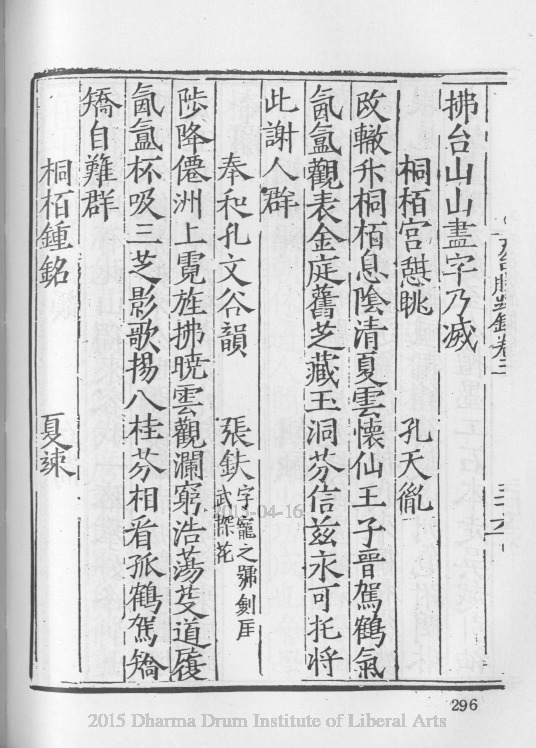 拂台山山盡字乃滅
桐栢宮憇眺　孔天胤
改轍升桐栢息陰清夏雲懷仙王子晉駕鶴氣
氤氳觀表金庭舊芝藏玉洞芬信兹永可托将
此謝人群
奉和孔文谷韻　張鈇 字寵之號劍厓
武探花
陟降僊洲上霓旌拂曉雲觀瀾窮浩蕩芟道履
氤氳杯吸三芝影歌揚八桂芬相看孤鶴駕矯
矯自難群
桐栢鍾銘　夏竦
296
2015-04-16
2015 Dharma Drum Institute of Liberal Arts